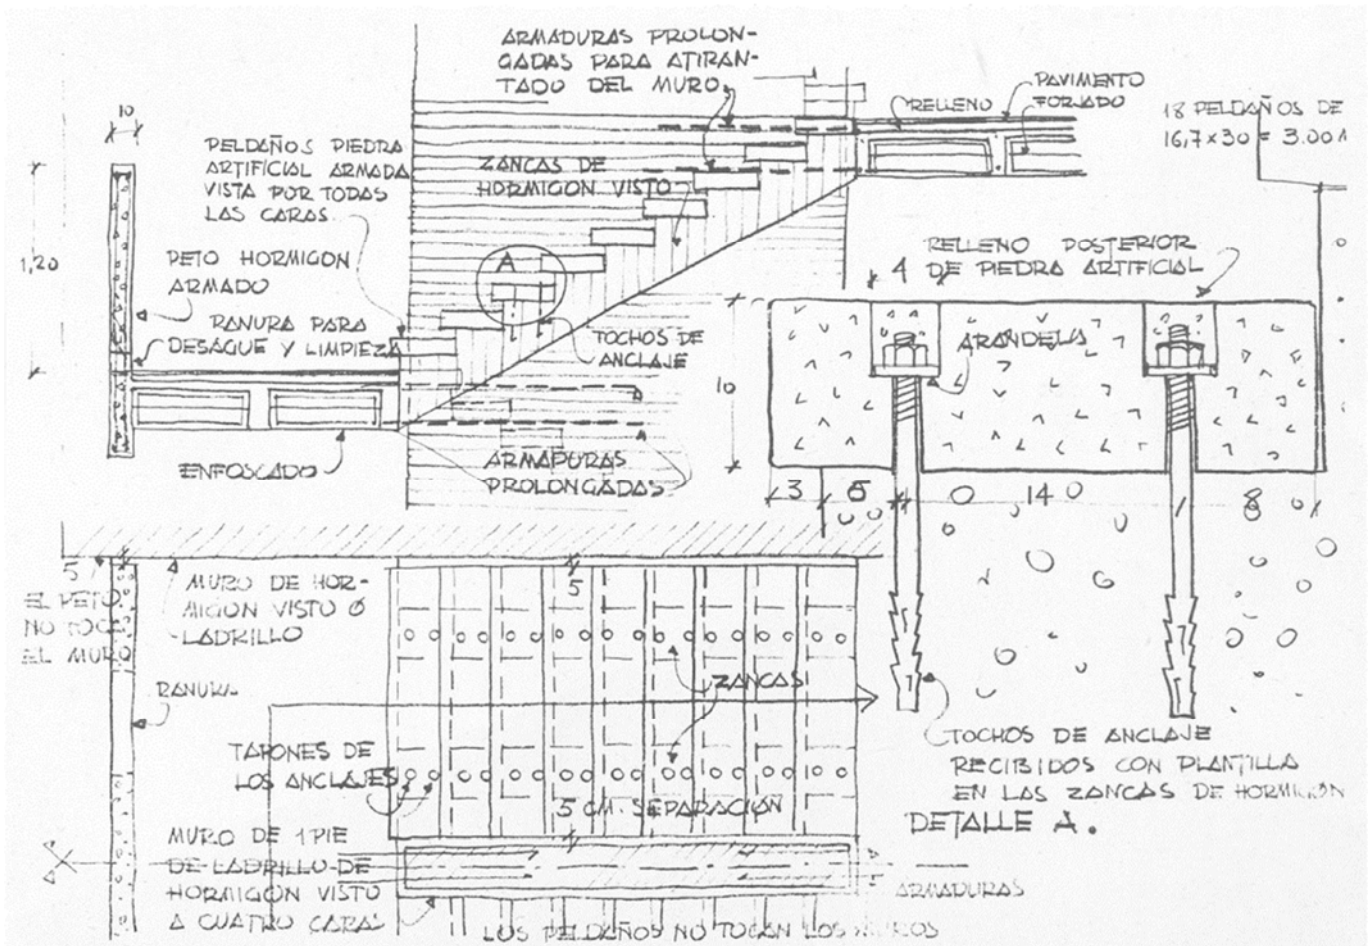 ARMADURAS PROLON-
GADAS PARA ATIRAN-
TADO DEL MURO
PAVIMENTO
FORJADO
RELLENO
18 PELDAÑOS DE
16,7×30 = 3.00
10
PELDAÑOS PIEDRA
ARTIFICIAL ARMADA
VISTA POR TODAS
LAS CARAS
ZANCAS DE
HORMIGON VISTO
1,20
PETO HORMIGON
ARMADO
RANURA PARA
DESAGUE Y LIMPIEZA
A
TOCHOS DE
ANCLAJE
ENFOSCADO
ARMADURAS
PROLONGADAS
RELLENO POSTERIOR
DE PIEDRA ARTIFICIAL
4
ARANDELA
10
3 5 14 8
5
EL PETO
NO TOCA
EL MURO
MURO DE HOR-
MIGON VISTO O
LADRILLO
5
RANURA
ZANCAS
TAPONES DE
LOS ANCLAJES
5 CM. SEPARACIÓN
TOCHOS DE ANCLAJE
RECIBIDOS CON PLANTILLA
EN LAS ZANCAS DE HORMIGON
DETALLE A.
MURO DE 1 PIE
DE LADRILLO DE
HORMIGON VISTO
A CUATRO CARAS
ARMADURAS
LOS PELDAÑOS NO TOCAN LOS MUROS